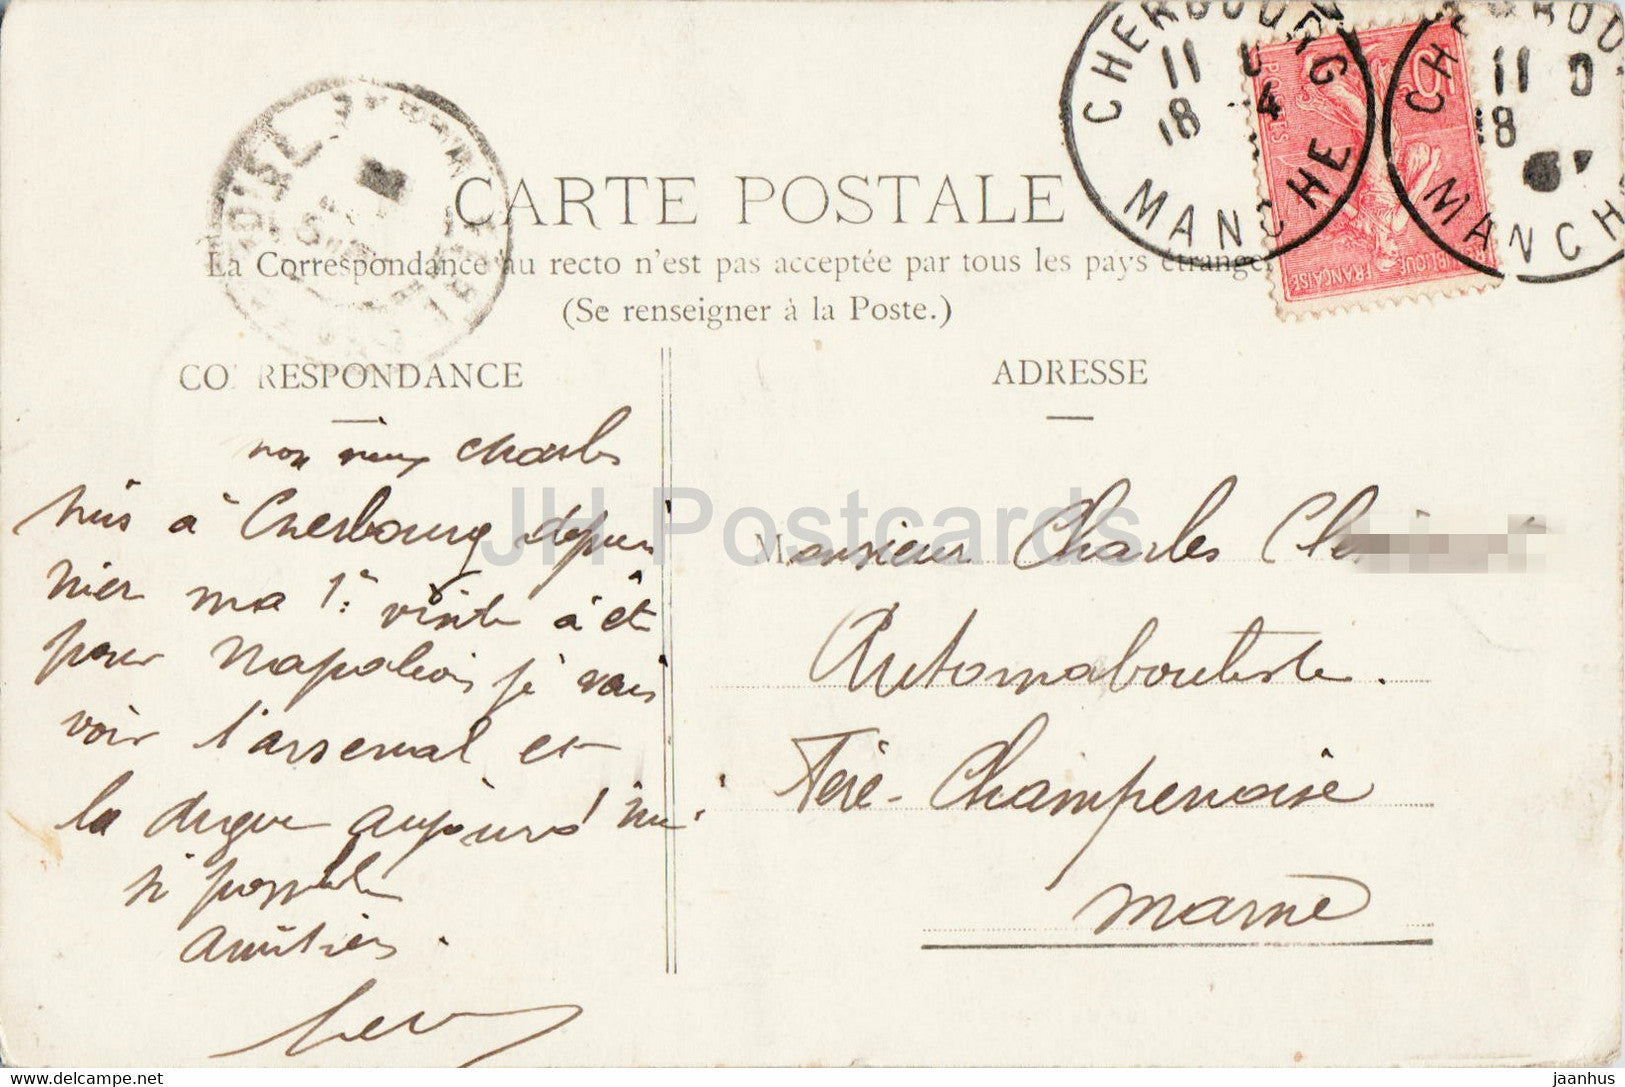 CHERBOURG
11
18 4
MANCHE
11
18
MANCHE
10
POSTES
RÉPUBLIQUE FRANÇAISE
CARTE POSTALE
La Correspondance au recto n'est pas acceptée par tous les pays étrangers
(Se renseigner à la Poste.)
CORRESPONDANCE
ADRESSE
mon vieux Charles
suis à Cherbourg depuis
hier ma 1è visite a ét
pour Napoléon je vais
voir l'arsenal et
la digue aujourd'hui
si possible
amitiés.
Monsieur Charles
Automaboutiste.
Fère-Champenoise
Marne
JH Postcards
jaanhus